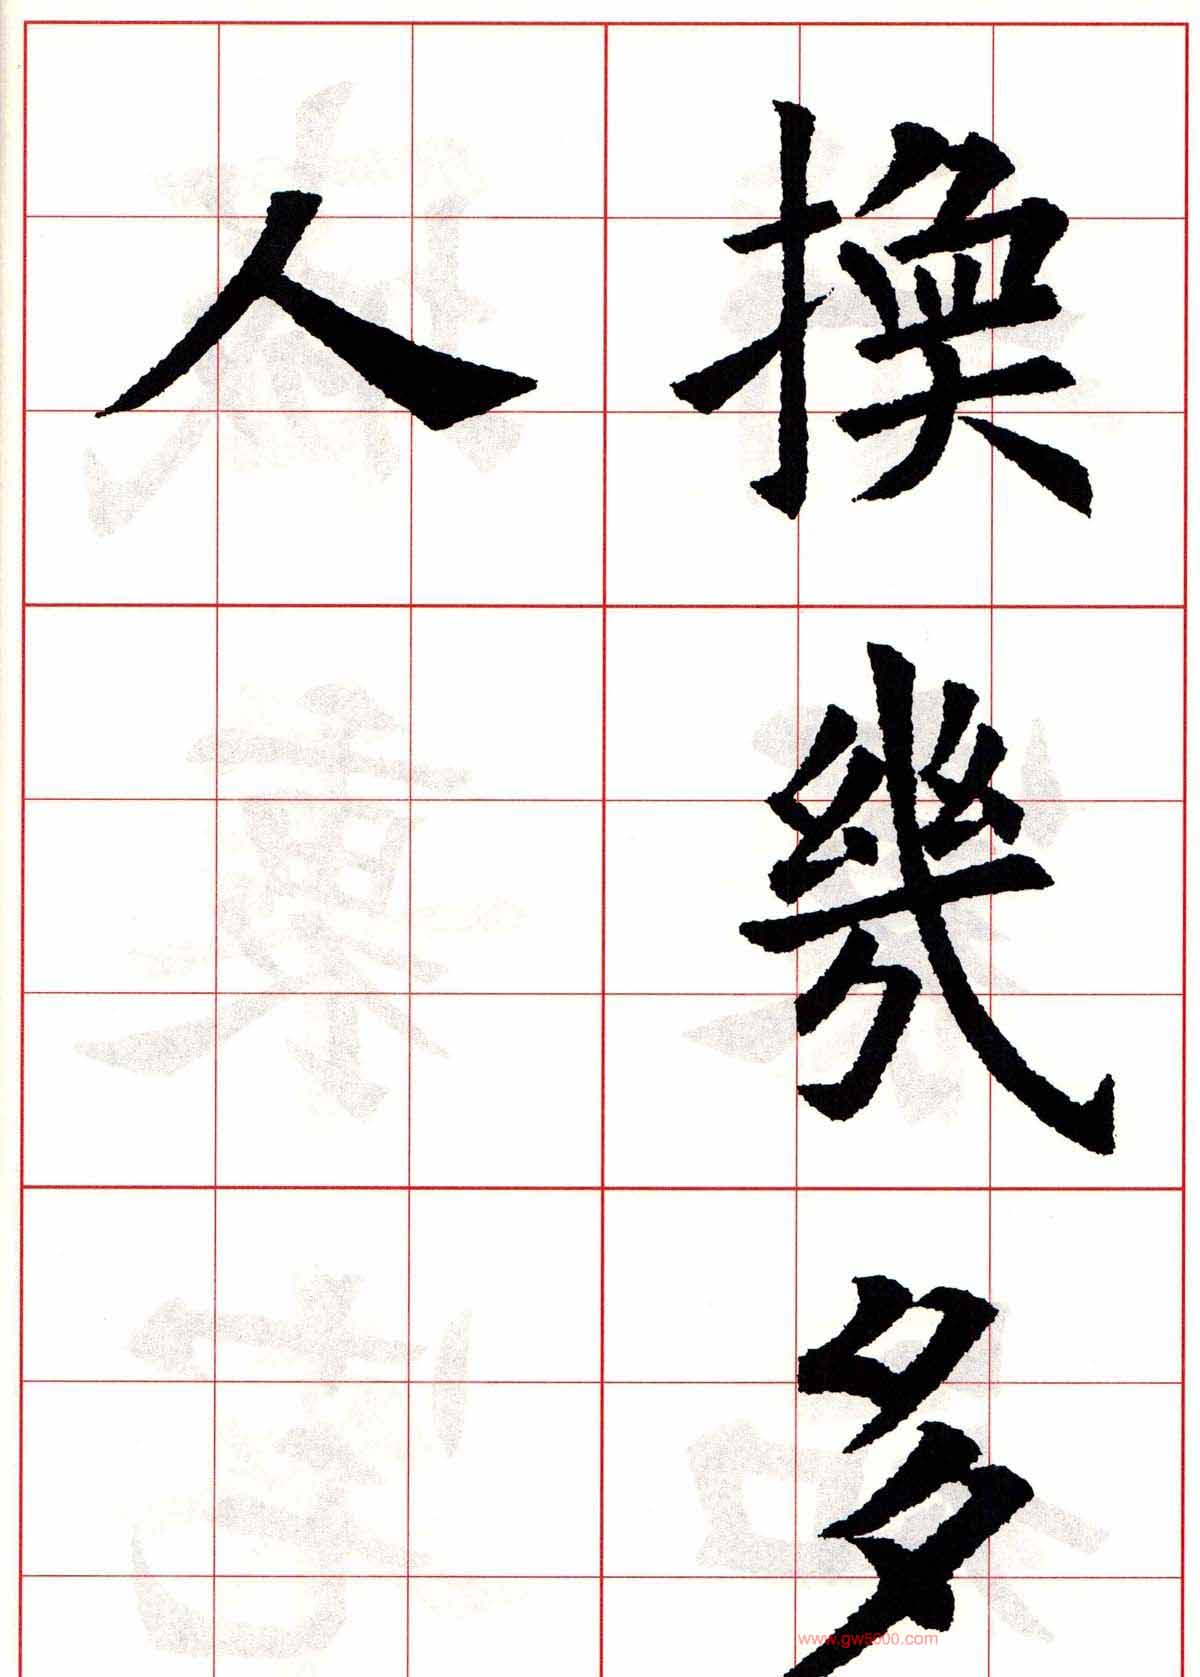 換幾多
人
www.gw5000.com